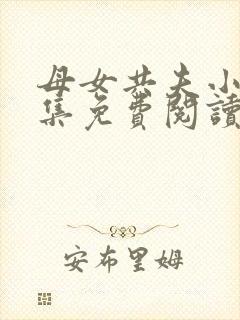 母女共夫小
集免費閱讀
安布里姆